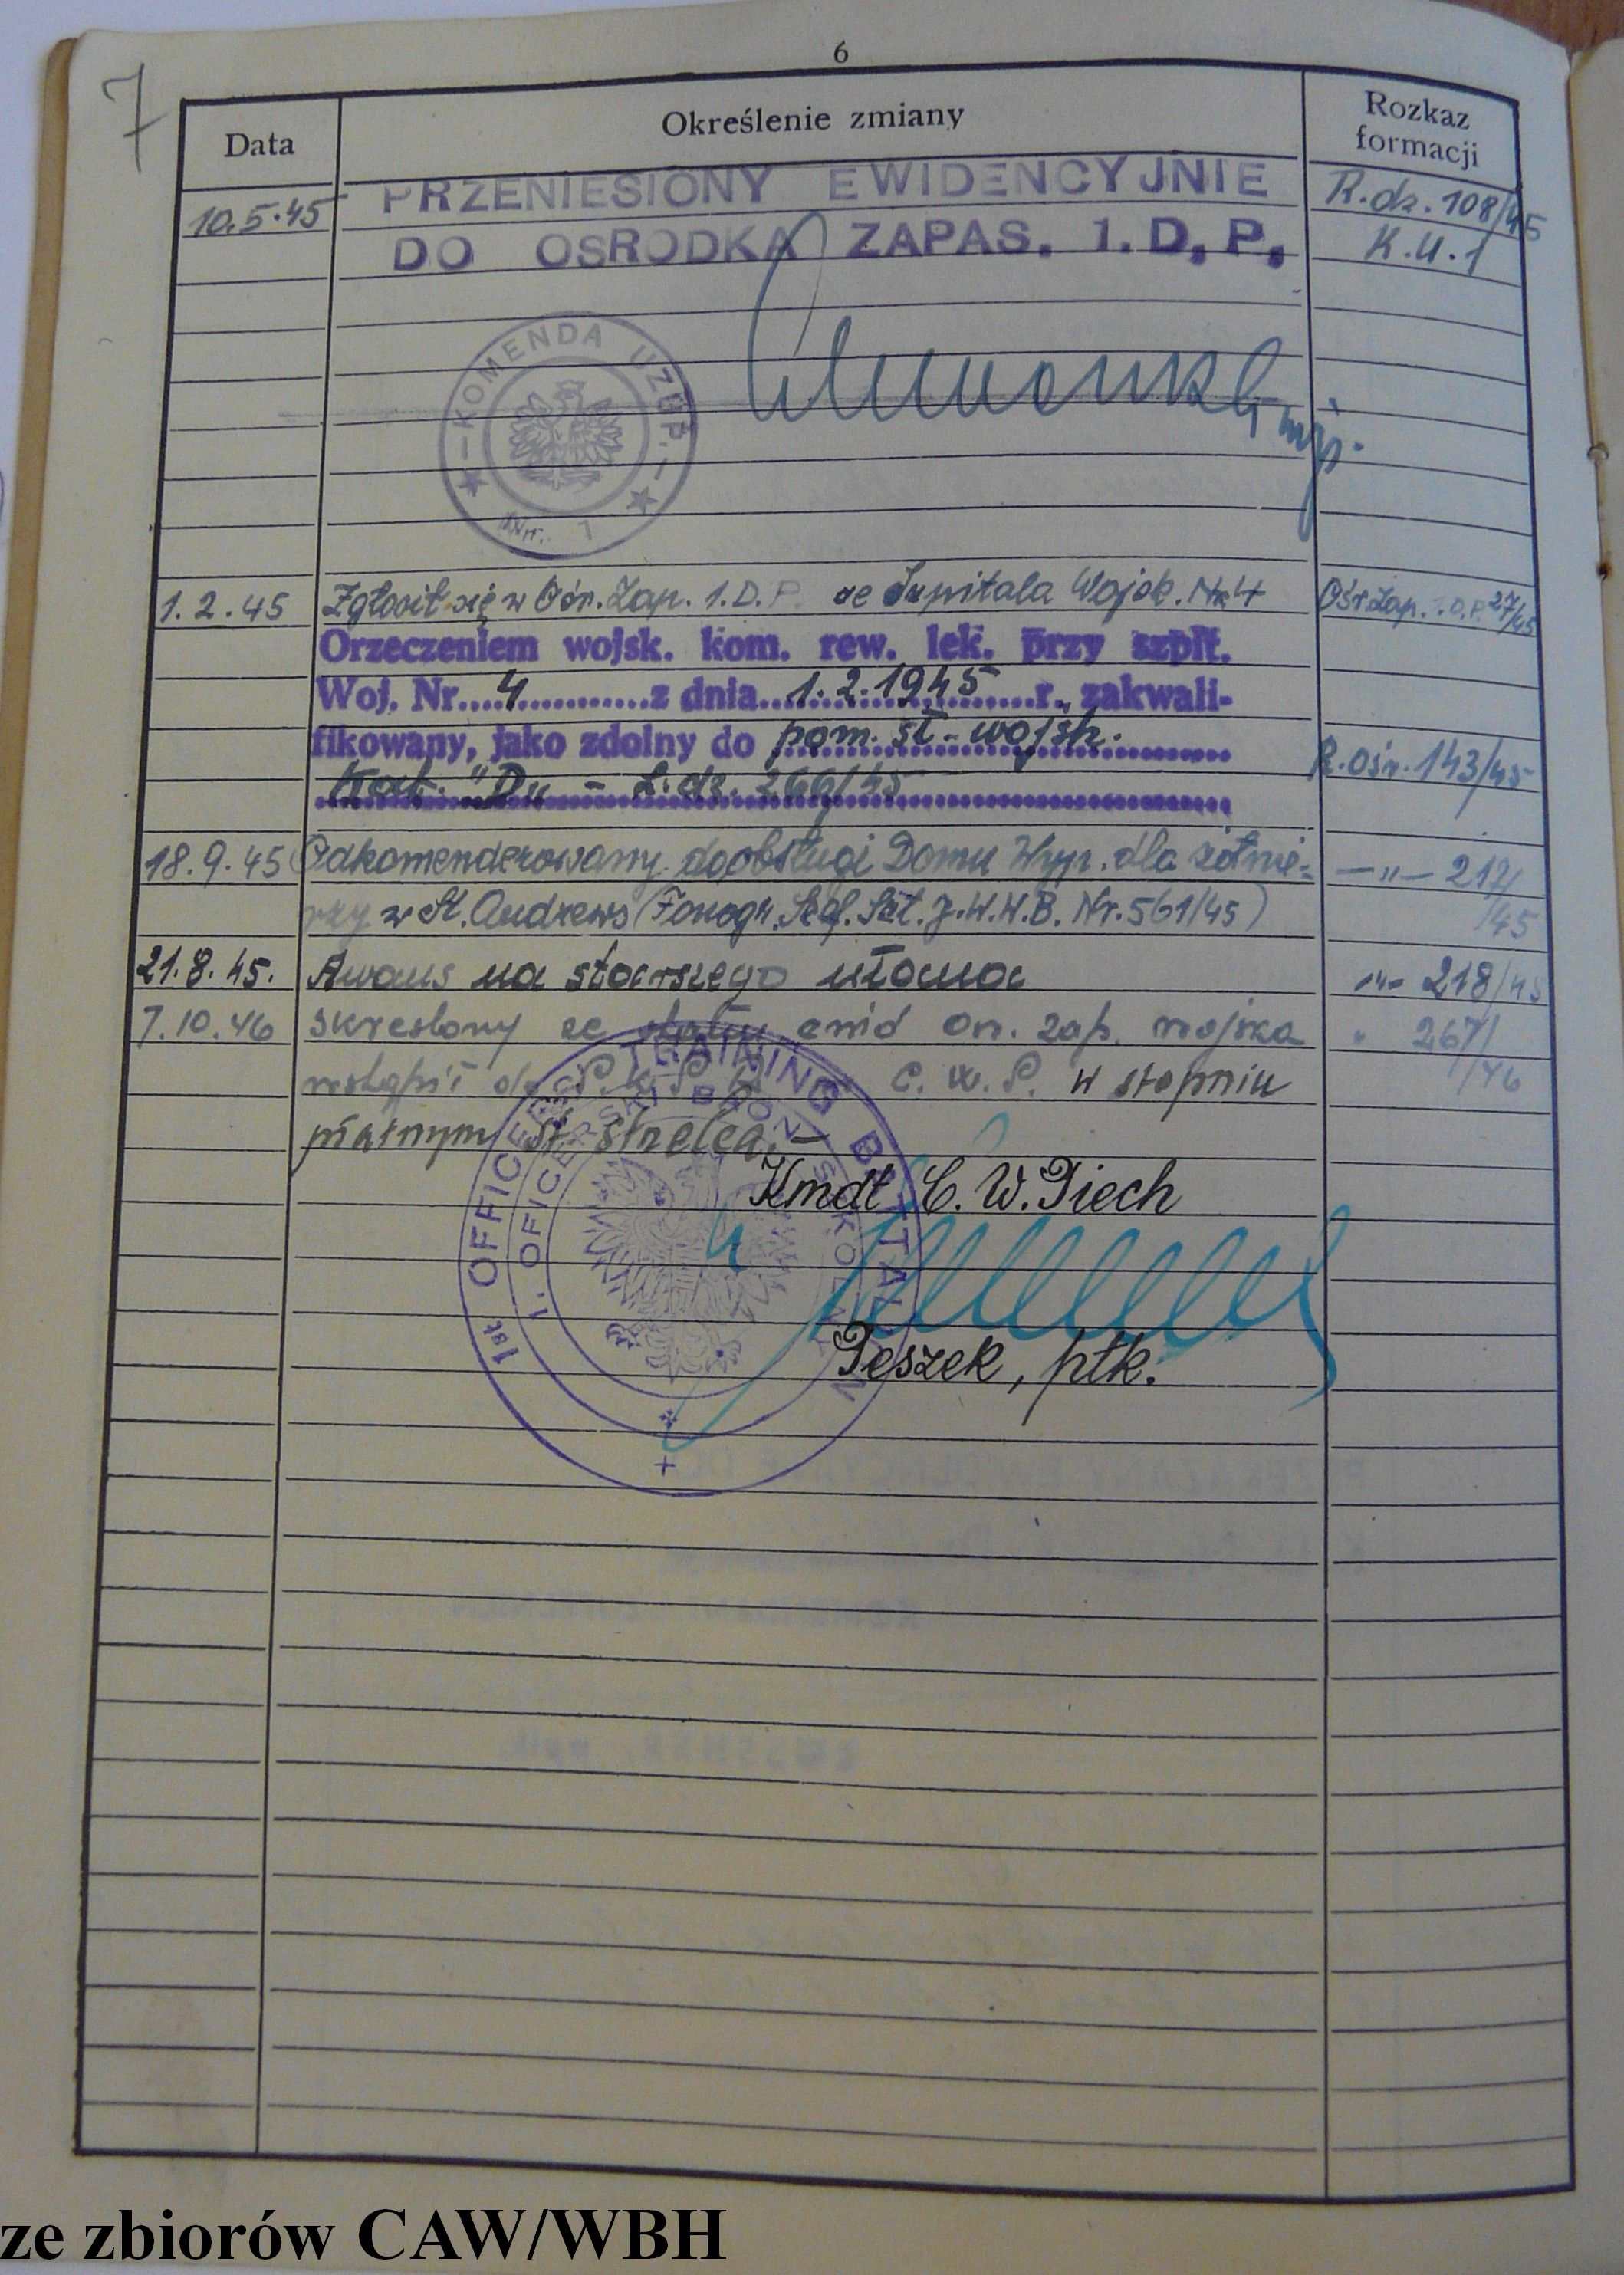 7
6
Data
Określenie zmiany
Rozkaz
formacji
10.5.45
PRZENIESIONY EWIDENCYJNIE
R.dz. 108/45
DO OSRODKA ZAPAS. 1. D. P.
K.U.1
KOMENDA UZUP.
Nr. 1
mjr.
1.2.45
Zgłosił się w Ośr. Zap. 1. D. P. ze Szpitala Wojsk. Nr 4
Ośr. Zap. 1. D.P. 27/45
Orzeczeniem wojsk. kom. rew. lek. przy szpit.
Woj. Nr....4...........z dnia...1.2.1945......r., zakwali-
fikowany, jako zdolny do pom. sł. wojsk.
R. Ośr. 143/45
Kat. "D" - L.dz. 266/45
18.9.45
Odkomenderowany do obsługi Domu Wyp. dla żołnie-
—„— 217/
rzy w St. Andrews (Fonogr. Szef. Szt. J.W.W.B. Nr. 561/45)
/45
21.8.45.
Awans na starszego ułana
-„- 218/45
7.10.46
skreślony ze stanu ewid Ośr. zap. wojska
" 267/
wstąpił do P.K.P.R. C.W.P. w stopniu
/46
płatnym st. strzelca.—
1st OFFICERS TRAINING BATTALION
1. OFICERSKI BAON SZKOLNY
Kmdt C. W. Piech
Peszek, płk.
ze zbiorów CAW/WBH